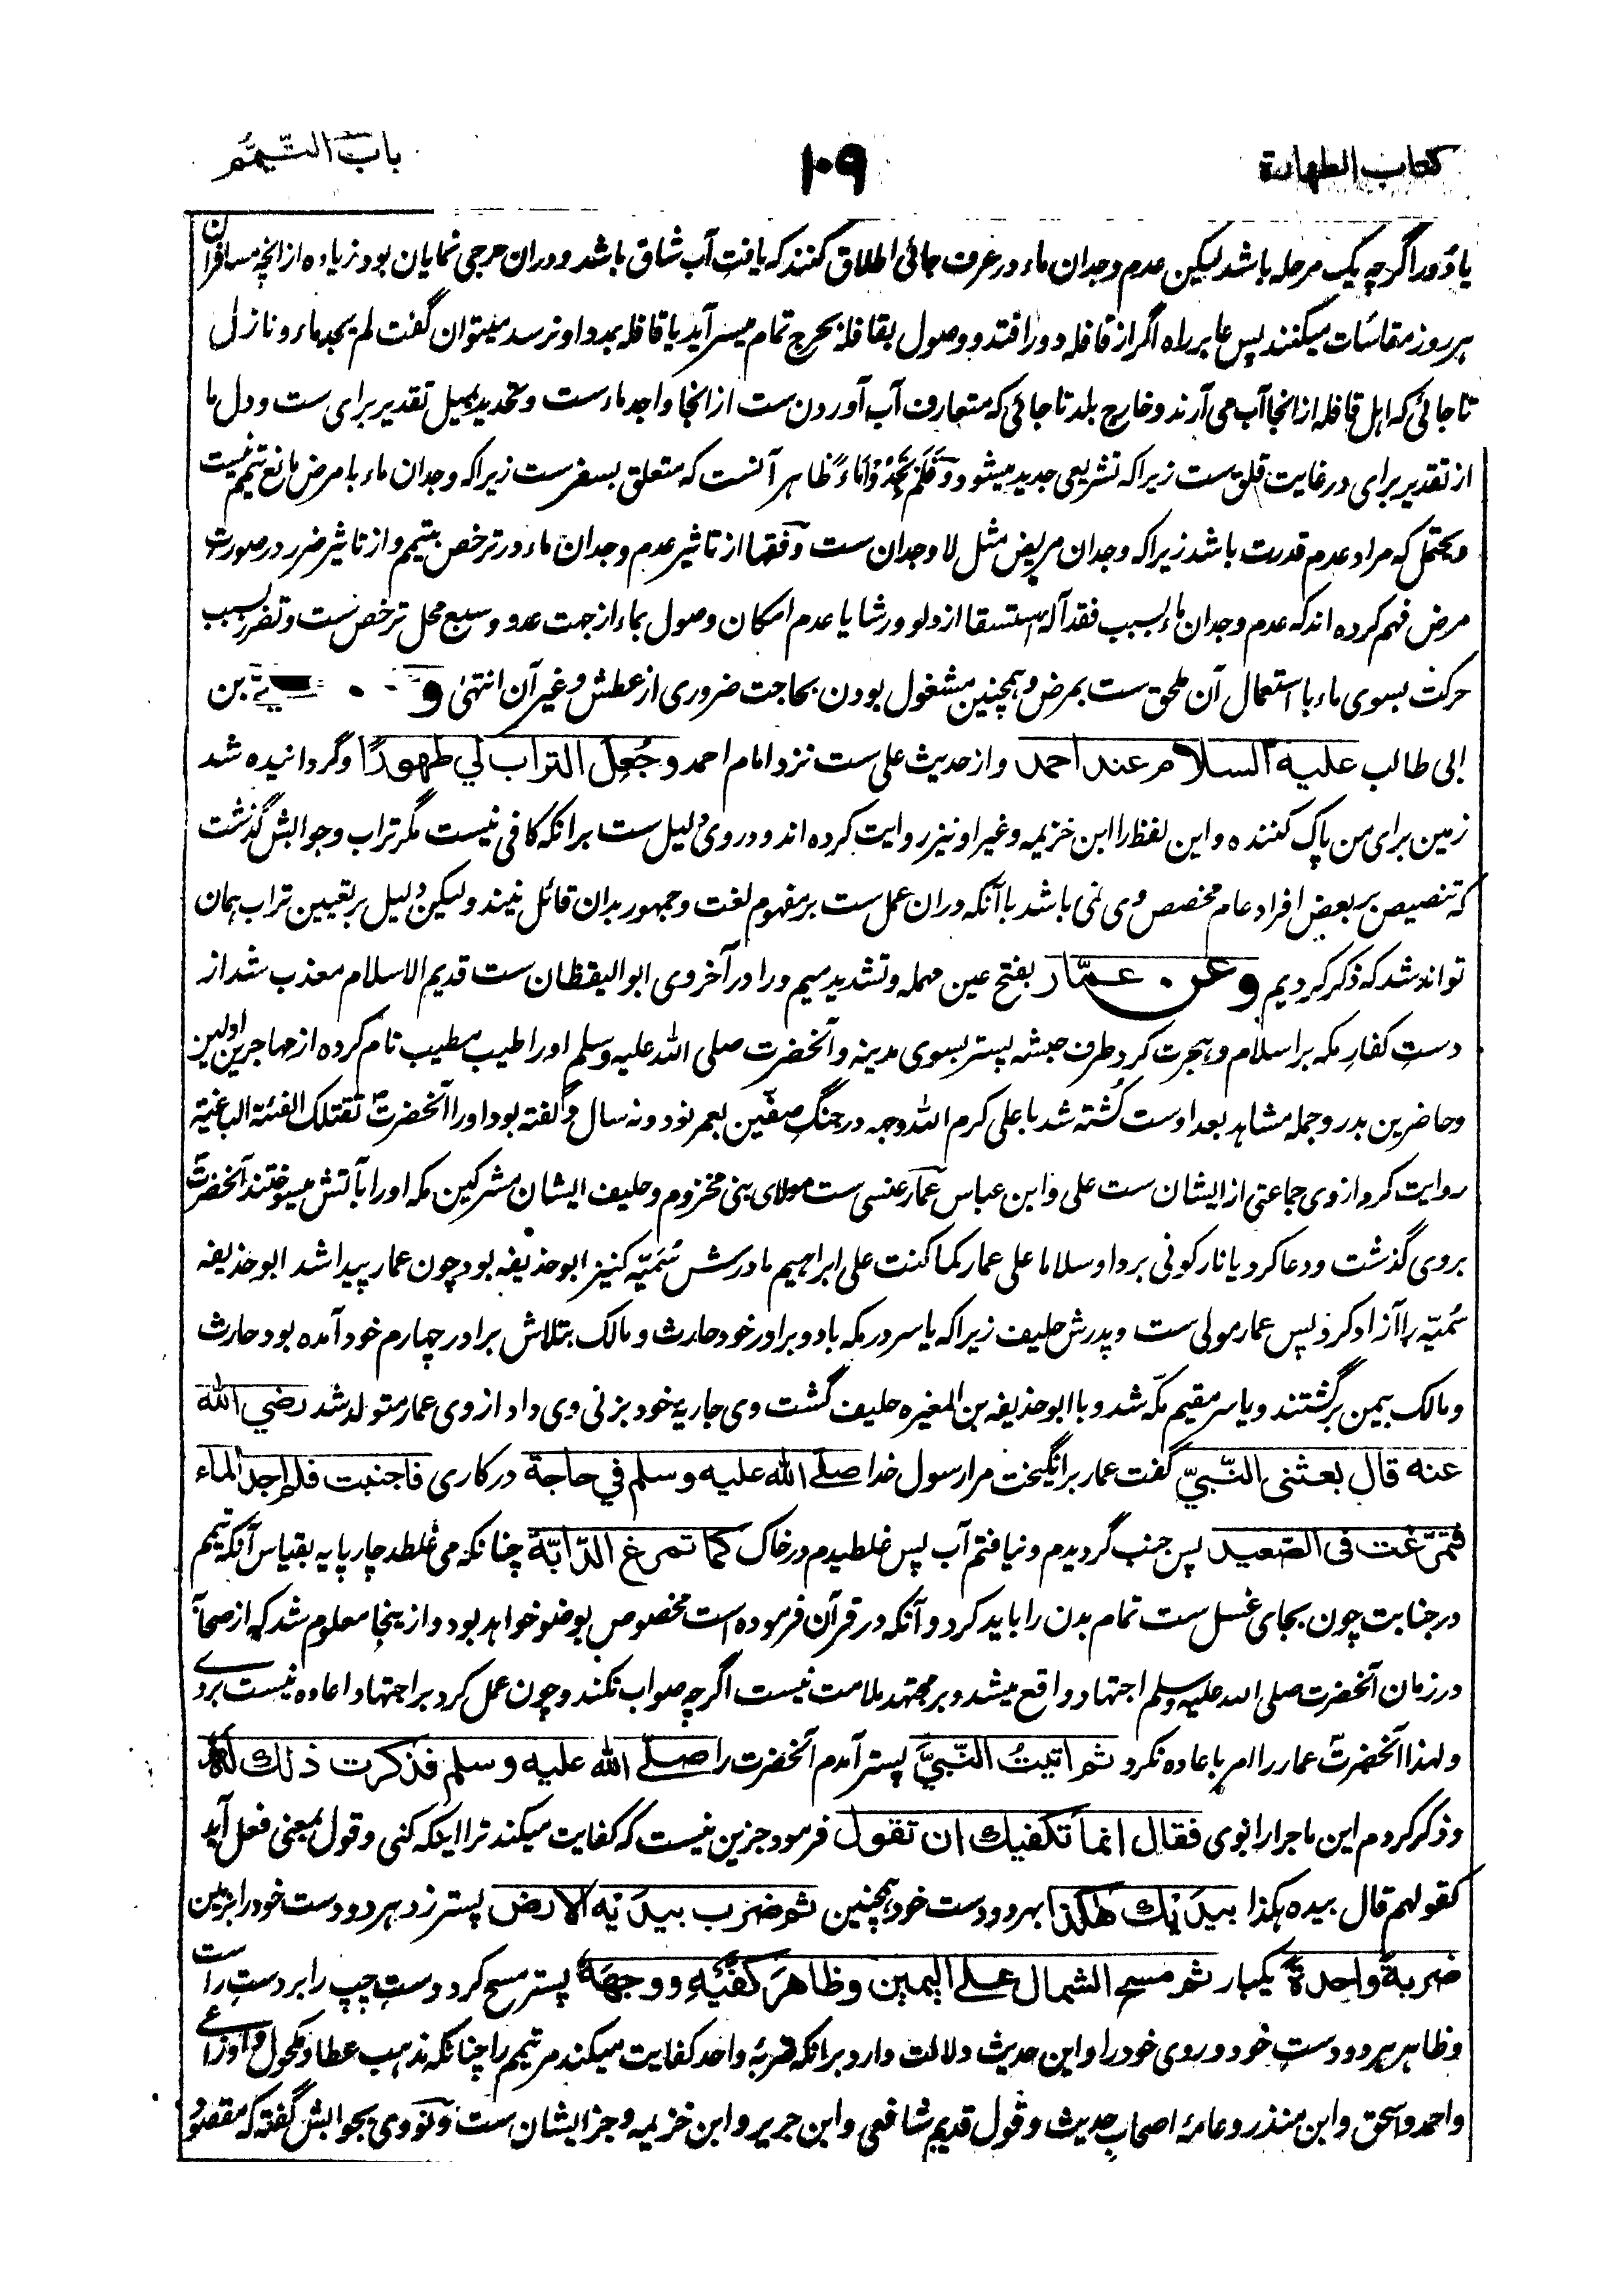 كتاب الطهارة
۱۰۹
باب التيمم
یا دور اگرچه یک مرحله باشد لیکن عدم وجدان ماء در عرف جائی اطلاق کنند که یافت آب شاق باشد و دران حرجی نمایان بود زیاده از انچه مسافران
هر روز مقاسات میکنند پس عابر راه اگر از قافله دور افتد و وصول بقافله بحرج تمام میسر آید یا قافله بمدد او نرسد میتوان گفت لم یجد ماء و نازل
تا جائی که اهل قافله از انجا آب می آرند و خارج بلد تا جائی که متعارف آب آوردن ست از انجا واجد ماء ست و تحدید بمیل تقدیر برای ست و دل ما
از تقدیر برای در غایت قلق ست زیرا که تشریعی جدید میشود و فلم تجدوا ماء ظاهر آنست که متعلق بسفر ست زیرا که وجدان ماء با مرض مانع تیمم نیست
و یحتمل که مراد عدم قدرت باشد زیرا که وجدان مریض مثل لا وجدان ست و فقها از تاثیر عدم وجدان ماء در ترخص بتیمم و از تاثیر ضرر در صورت
مرض فهم کرده اند که عدم وجدان ماء بسبب فقد آله استسقا از دلو و رشا یا عدم امکان وصول بماء از جهت عدو و سبع محل ترخص ست و تضرر بسبب
حرکت بسوی ماء یا استعمال آن ملحق ست بمرض و همچنین مشغول بودن بحاجت ضروری از عطش و غیر آن انتهی و بن
ابی طالب علیه السلام عند احمد و از حدیث علی ست نزد امام احمد و جعل التراب لي طهورا و گردانیده شد
زمین برای من پاک کننده و این لفظ را ابن خزیمه و غیر او نیز روایت کرده اند و در وی دلیل ست برانکه کافی نیست مگر تراب و جوابش گذشت
که تنصیص بر بعض افراد عام مخصص وی نمی باشد با آنکه دران عمل ست بر مفهوم لغت و جمهور بدان قائل نیند و لیکن دلیل بر تعیین تراب همان
تواند شد که ذکر کردیم و عن عمّار بفتح عین مهمله و تشدید میم و را در آخر وی ابو الیقظان ست قدیم الاسلام معذب شد از
دست کفار مکه بر اسلام و هجرت کرد طرف حبشه پستر بسوی مدینه و آنحضرت صلی الله علیه وسلم او را طیب مطیب نام کرده از مهاجرین اولین
و حاضرین بدر و جمله مشاهد بعد اوست کشته شد با علی کرم الله وجهه در جنگ صفّین بعمر نود و نه سال و گفته بود او را آنحضرت تقتلك الفئة الباغیة
روایت کرد از وی جماعتی از ایشان ست علی و ابن عباس عمار عنسی ست مولای بنی مخزوم و حلیف ایشان مشرکین مکه او را بآتش میسوختند آنحضرت
بر وی گذشت و دعا کرد یا نار کونی بردا و سلاما علی عمار کما کنت علی ابراهیم مادرش سُمَیّه کنیز ابو حذیفه بود چون عمار پیدا شد ابو حذیفه
سمیّه را آزاد کرد پس عمار مولی ست و پدرش حلیف زیرا که یاسر در مکه با دو برادر خود حارث و مالک بتلاش برادر چهارم خود آمده بود حارث
و مالک بیمن برگشتند و یاسر مقیم مکّه شد و با ابو حذیفه بن المغیره حلیف گشت وی جاریۀ خود بزنی وی داد از وی عمار متولد شد رضي الله
عنه قال بعثنی النّبيّ گفت عمار برانگیخت مرا رسول خدا صلے الله علیه وسلم في حاجة در کاری فاجنبت فلم اجد الماء
فتمرّغت فی الصّعید پس جنب گردیدم و نیافتم آب پس غلطیدم در خاک کما تمرغ الدّابّة چنانکه می غلطد چارپایه بقیاس آنکه تیمم
در جنابت چون بجای غسل ست تمام بدن را باید کرد و آنکه در قرآن فرموده است مخصوص بوضو خواهد بود و ازینجا معلوم شد که از صحابه
در زمان آنحضرت صلی الله علیه وسلم اجتهاد واقع میشد و بر مجتهد ملامت نیست اگرچه صواب نکند و چون عمل کرد بر اجتهاد اعاده نیست بر وے
و لهذا آنحضرت عمار را امر باعاده نکرد ثم اتیتُ النّبيَّ پستر آمدم آنحضرت را صلے الله علیه وسلم فذکرت ذلك له
و ذکر کردم این ماجرا را بوی فقال انما تکفیك ان تقول فرمود جزین نیست که کفایت میکند ترا اینکه کنی و قول بمعنی فعل آید
کقولهم قال بیده هکذا بیدیك هکذا بهر دو دست خود همچنین ثم ضرب بیدیه الارض پستر زد بهر دو دست خود را بزمین
ضربة واحدة یکبار ثم مسح الشمال علے الیمین وظاهر کفیه ووجهه پستر مسح کرد دست چپ را بر دست راست
و ظاهر هر دو دست خود و روی خود را و این حدیث دلالت دارد برانکه ضربۀ واحد کفایت میکند مر تیمم را چنانکه مذهب عطا و مکحول و اوزاعے
و احمد و اسحق و ابن منذر و عامۀ اصحاب حدیث و قول قدیم شافعی و ابن جریر و ابن خزیمه و جز ایشان ست و نووی بجوابش گفته که مقصود